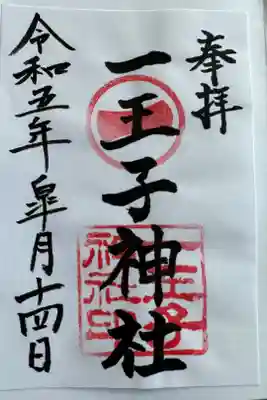 奉拝
一王子神社
令和五年皐月十四日
一王子
神社印